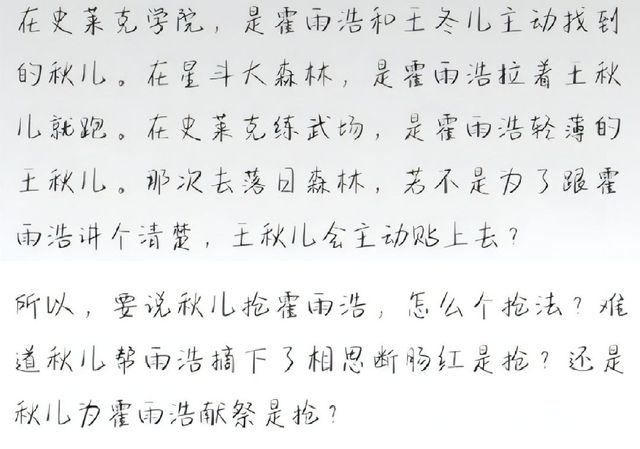 在史莱克学院，是霍雨浩和王冬儿主动找到
的秋儿。在星斗大森林，是霍雨浩拉着王秋
儿就跑。在史莱克练武场，是霍雨浩轻薄的
王秋儿。那次去落日森林，若不是为了跟霍
雨浩讲个清楚，王秋儿会主动贴上去？
所以，要说秋儿抢霍雨浩，怎么个抢法？难
道秋儿帮雨浩摘下了相思断肠红是抢？还是
秋儿为霍雨浩献祭是抢？